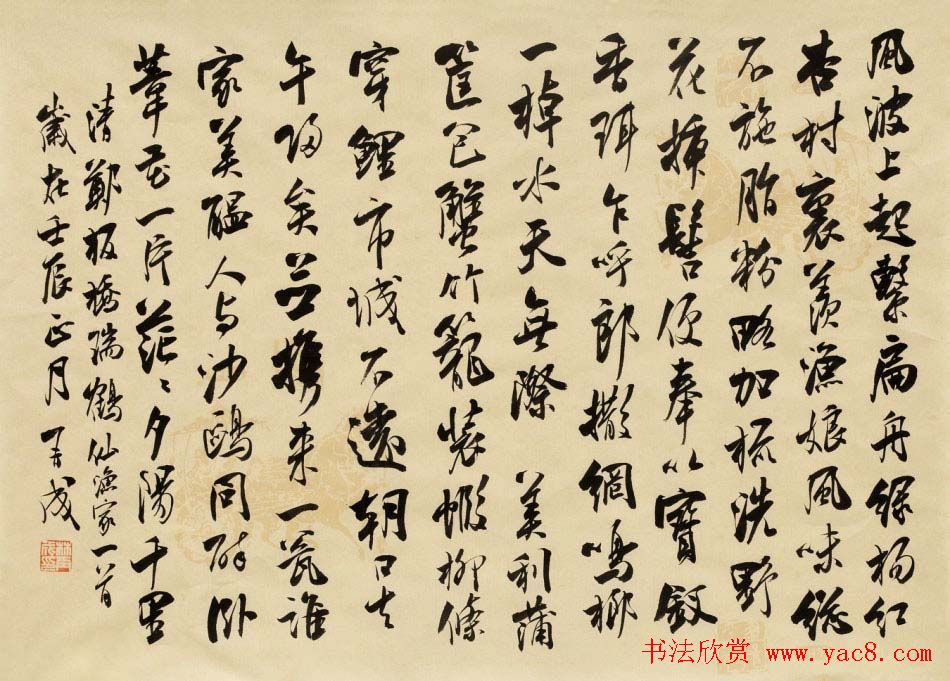 風波上起繫扁舟綠楊紅
杏村裏羨漁娘風味總
不施脂粉略加梳洗野
花插髻便奉以寶釵
香珥乍呼郎撒網鳴榔
一棹水天無際 美利蒲
筐包蟹竹籠裝蝦柳條
穿鯉市城不遠朝日去
午歸矣並攜來一瓮誰
家美醞人与沙鷗同醉臥
葦花一片茫〻夕陽千里
清鄭板橋瑞鶴仙漁家一首
歲在壬辰正月 成
书法欣赏 www.yac8.com